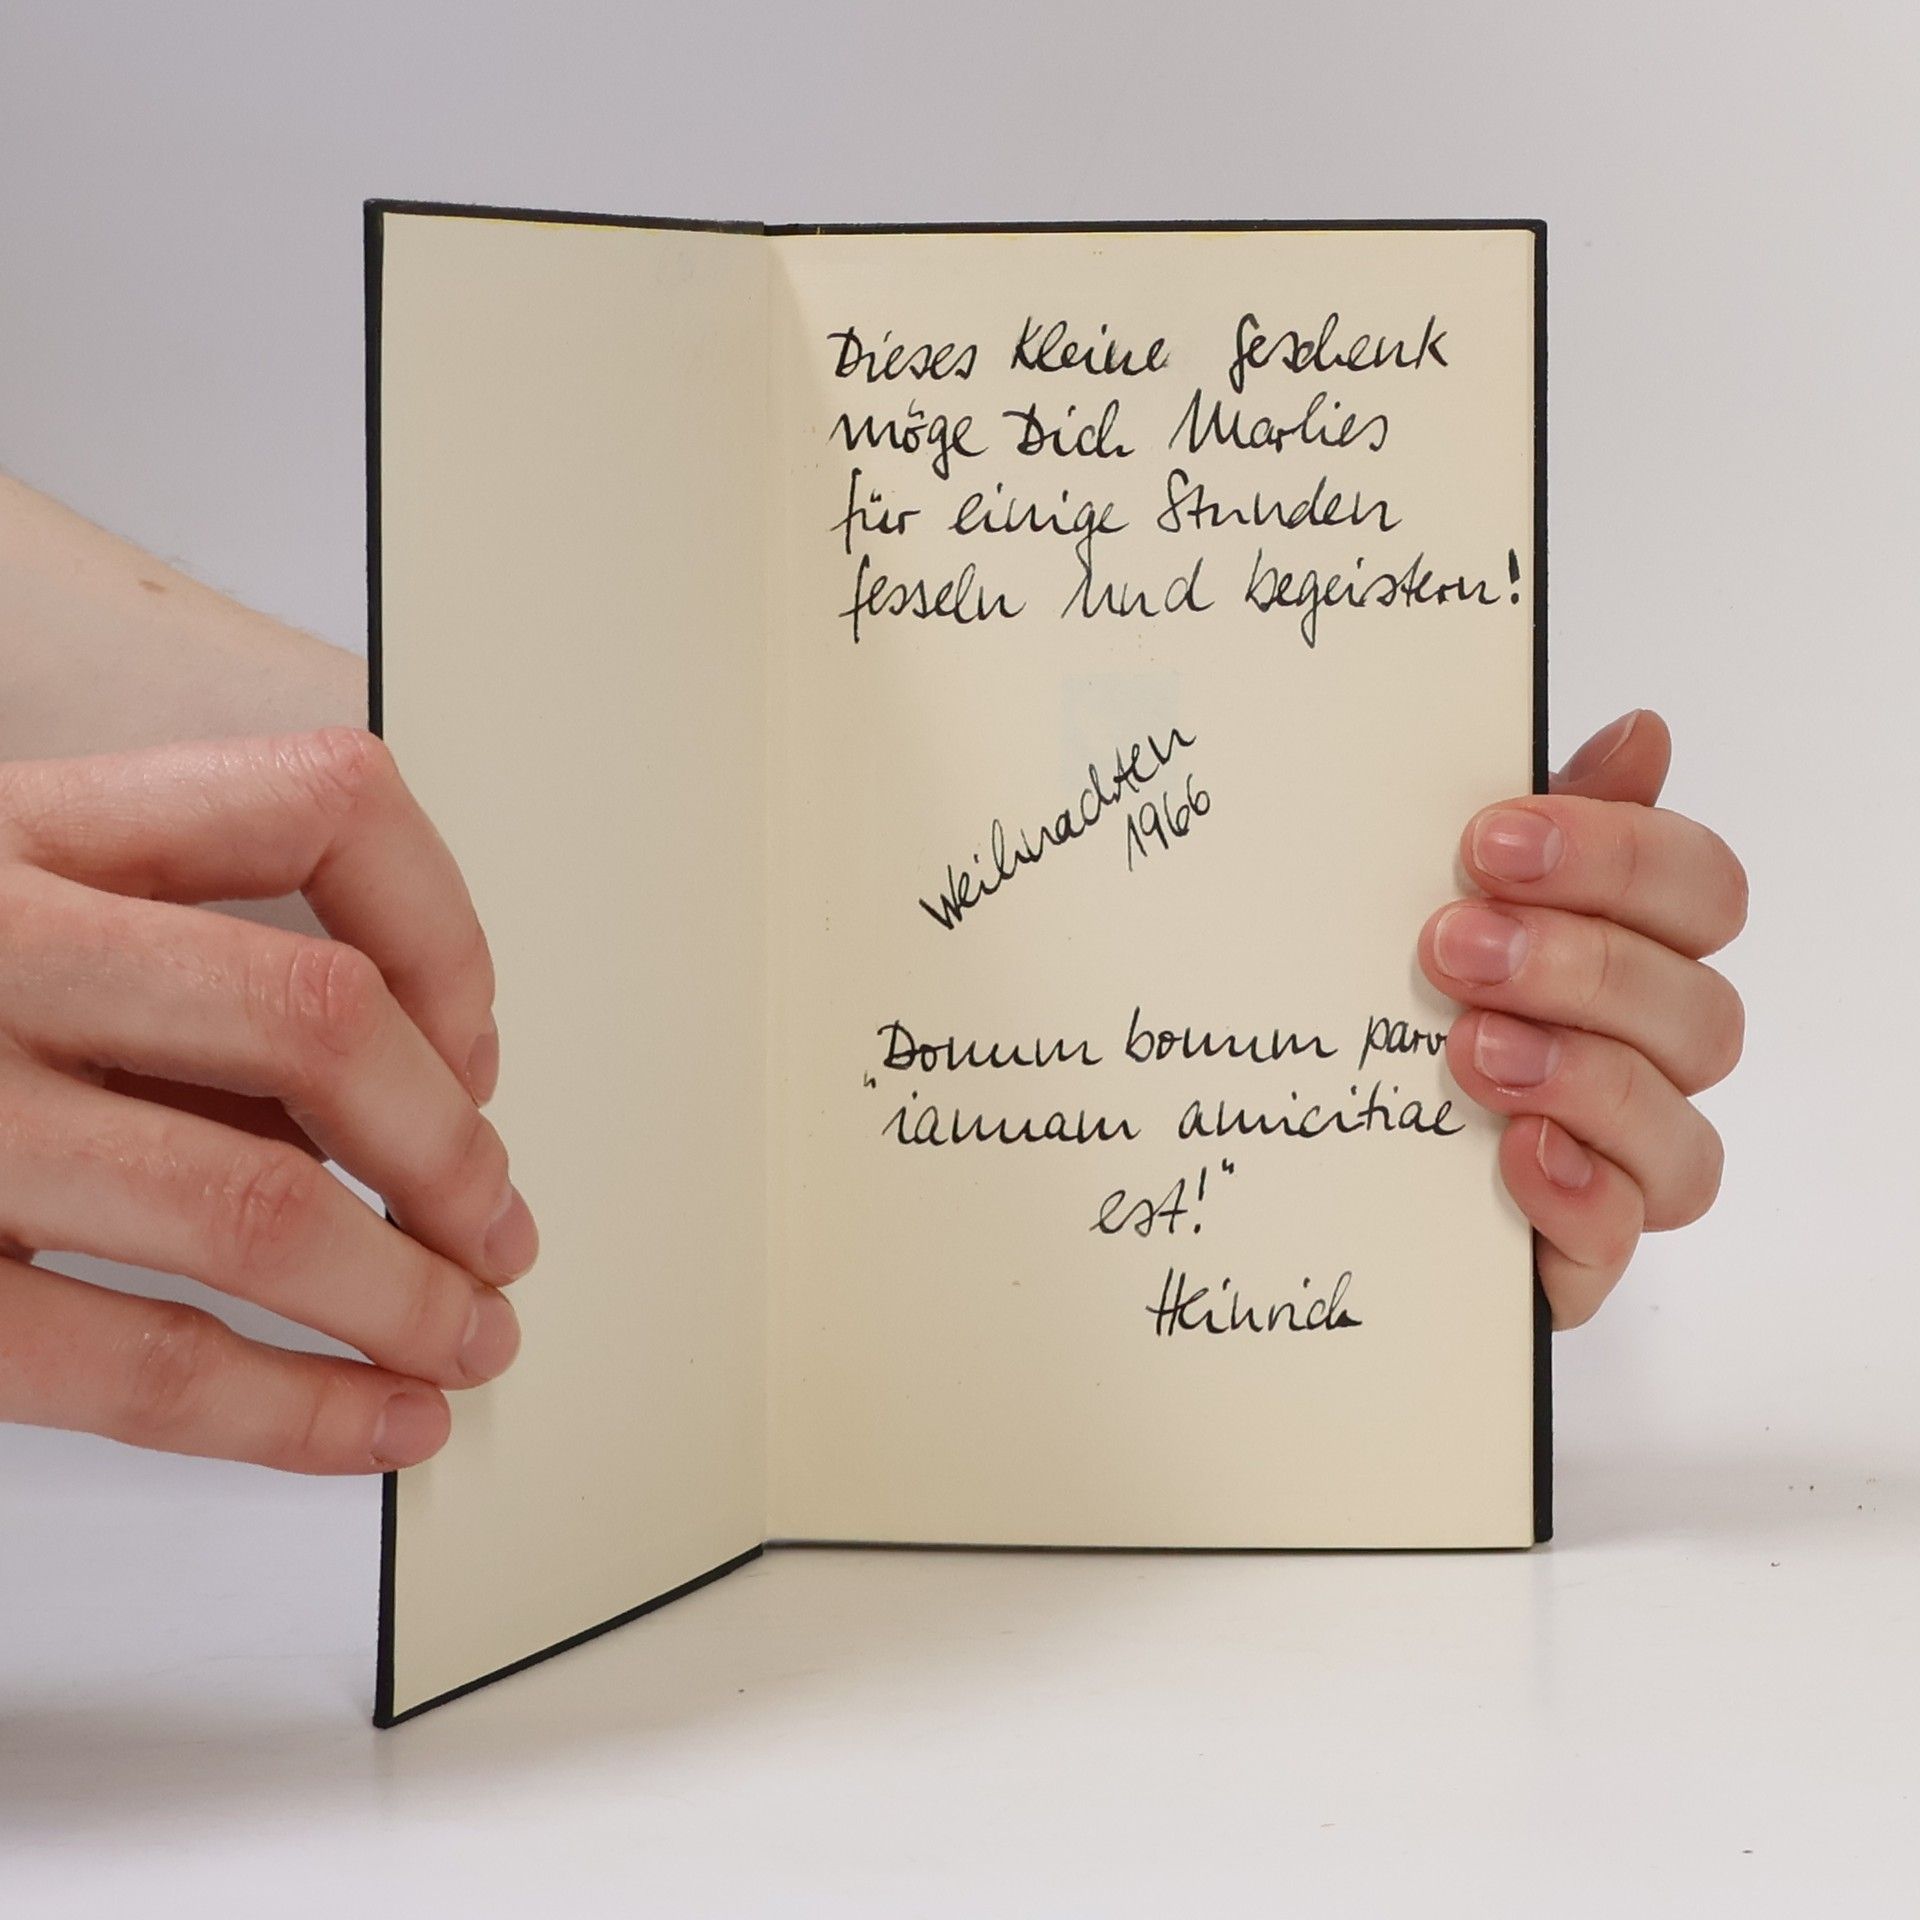 Dieses kleine Geschenk
möge Dich Marlies
für einige Stunden
fesseln und begeistern!
Weihnachten
1966
"Donum bonum parv
iannam amicitiae
est!"
Heinrich